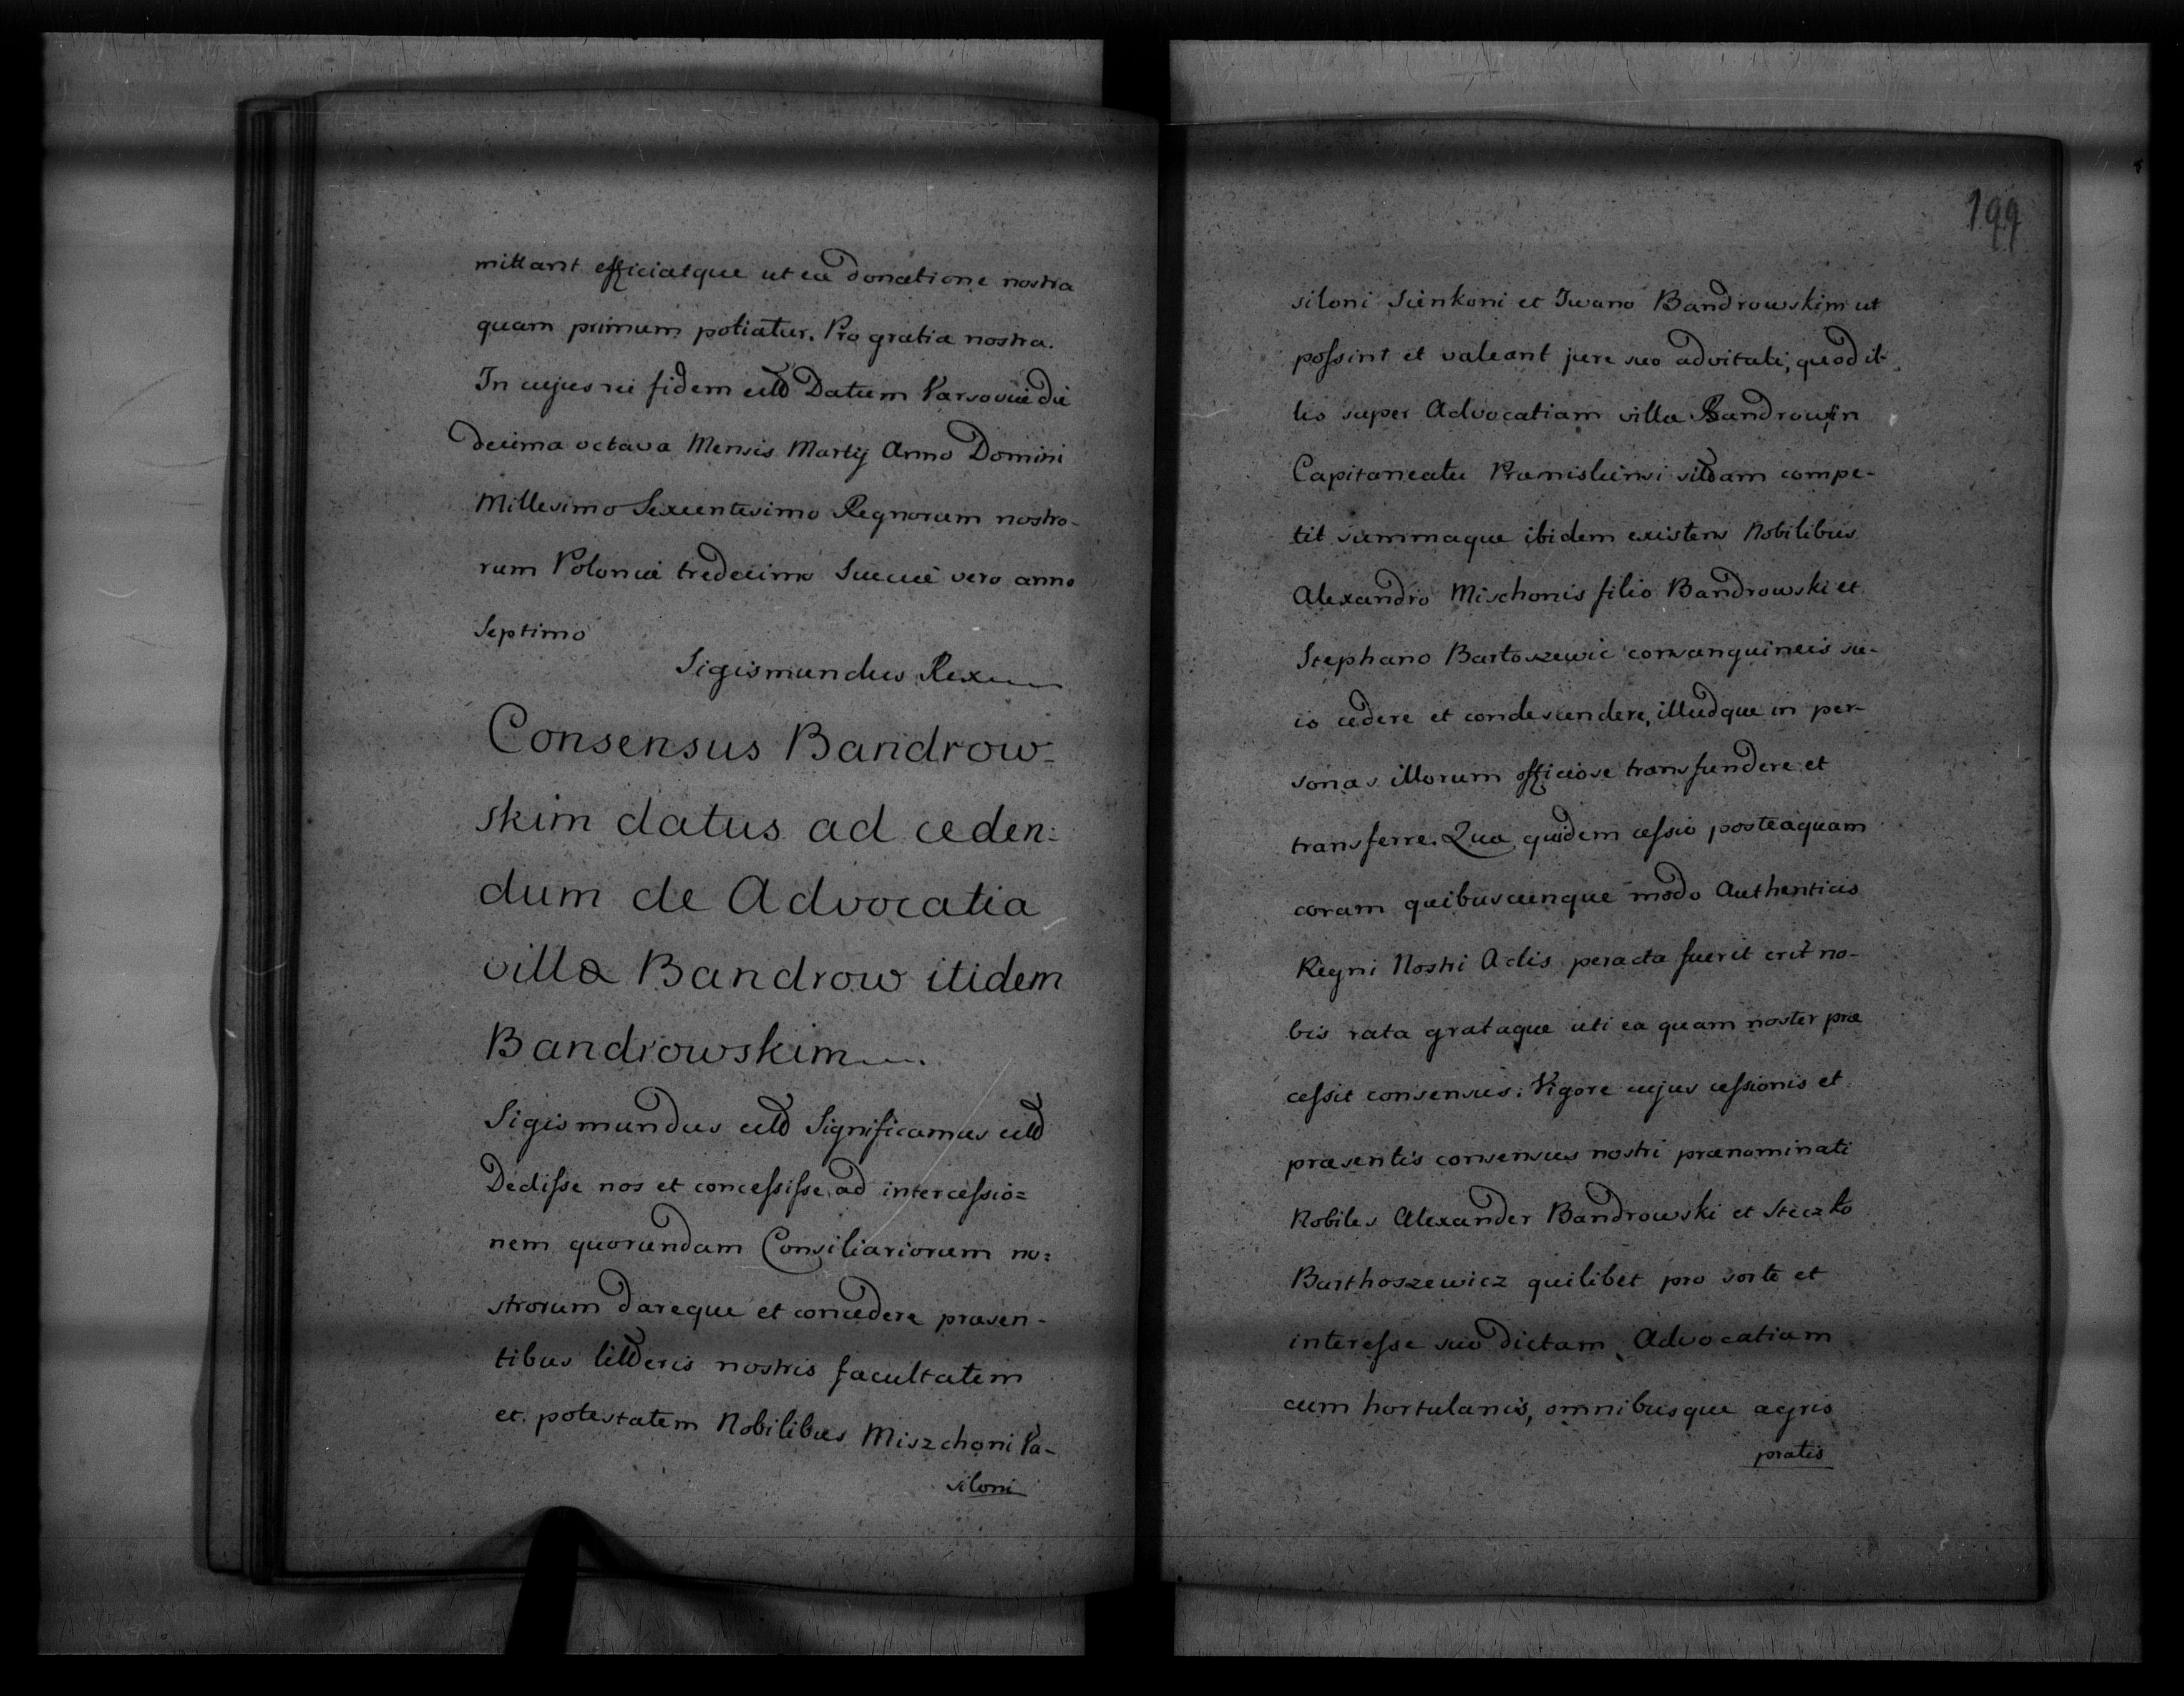 mittant efficiatque ut ea donatione nostra
quam primum potiatur. Pro gratia nostra.
In cujus rei fidem ettt Datum Varsoviæ die
decima octava Mensis Martij Anno Domini
Millesimo Sexcentesimo Regnorum nostro-
rum Poloniæ tredecimo Sueciæ vero anno
Septimo
Sigismundus Rex
Consensus Bandrow=
skim datus ad ceden=
dum de Advocatia
villæ Bandrow itidem
Bandrowskim
Sigismundus ettt Significamus ettt
Dedisse nos et concessisse ad intercessio=
nem quorundam Consiliariorum no=
strorum dareque et concedere præsen-
tibus litteris nostris facultatem
et potestatem Nobilibus Miszchoni Va-
siloni
199
siloni Sienkoni et Iwano Bandrowskim ut
possint et valeant jure suo advitali, quod il-
lis super Advocatiam villæ Bandrow, in
Capitaneatu Præmisliensi sittam compe-
tit summaque ibidem existens Nobilibus
Alexandro Mischonis filio Bandrowski et
Stephano Bartoszewic consanguineis su-
is cedere et condescendere, illudque in per-
sonas illorum officiose transfundere et
transferre. Qua quidem cessio posteaquam
coram quibuscunque modo Authenticis
Regni Nostri Actis peracta fuerit erit no-
bis rata grataque uti ea quam noster præ
cessit consensus. Vigore cujus cessionis et
præsentis consensus nostri prænominati
Nobiles Alexander Bandrowski et Steczko
Barthoszewicz quilibet pro sorte et
interesse suo dictam Advocatiam
cum hortulanis, omnibusque agris
pratis